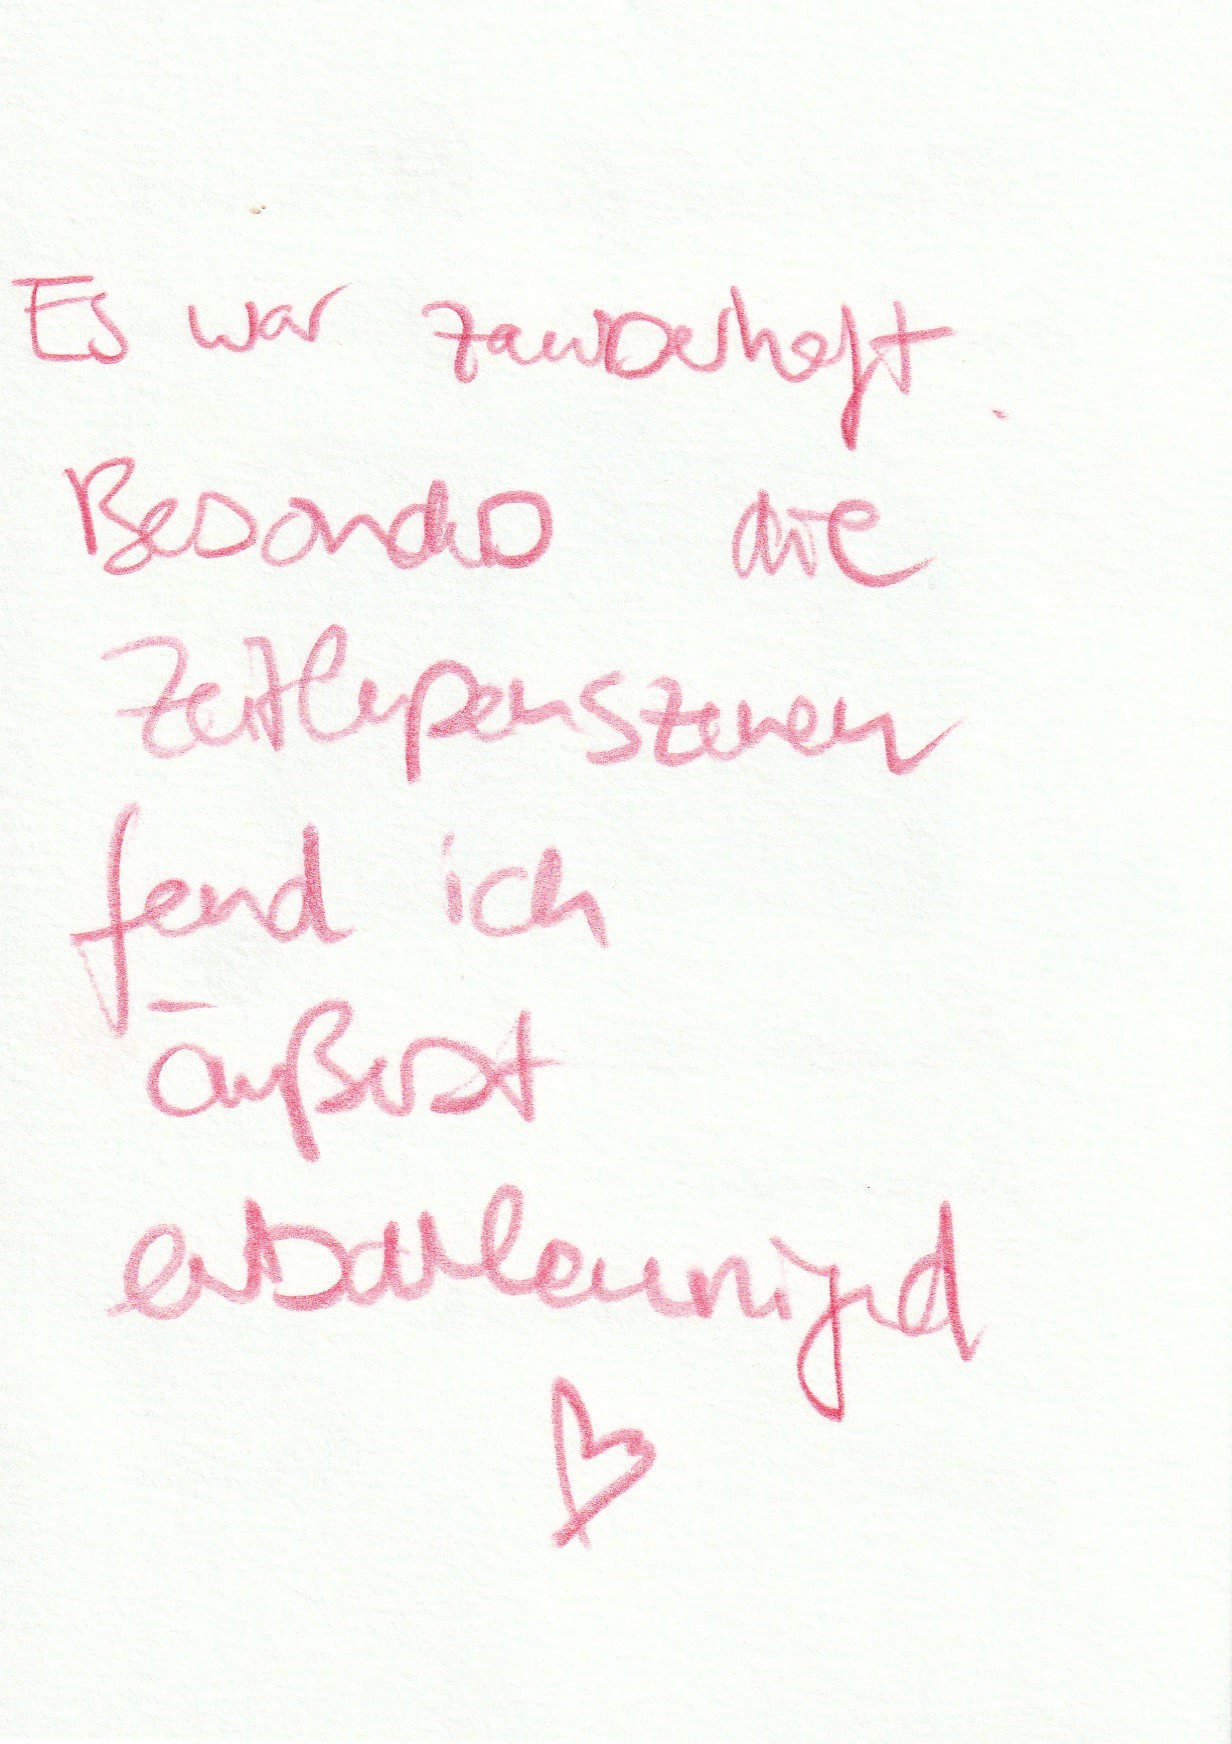 Es war zauberhaft.
Besonders die
Zeitlupenszenen
fand ich
äußerst